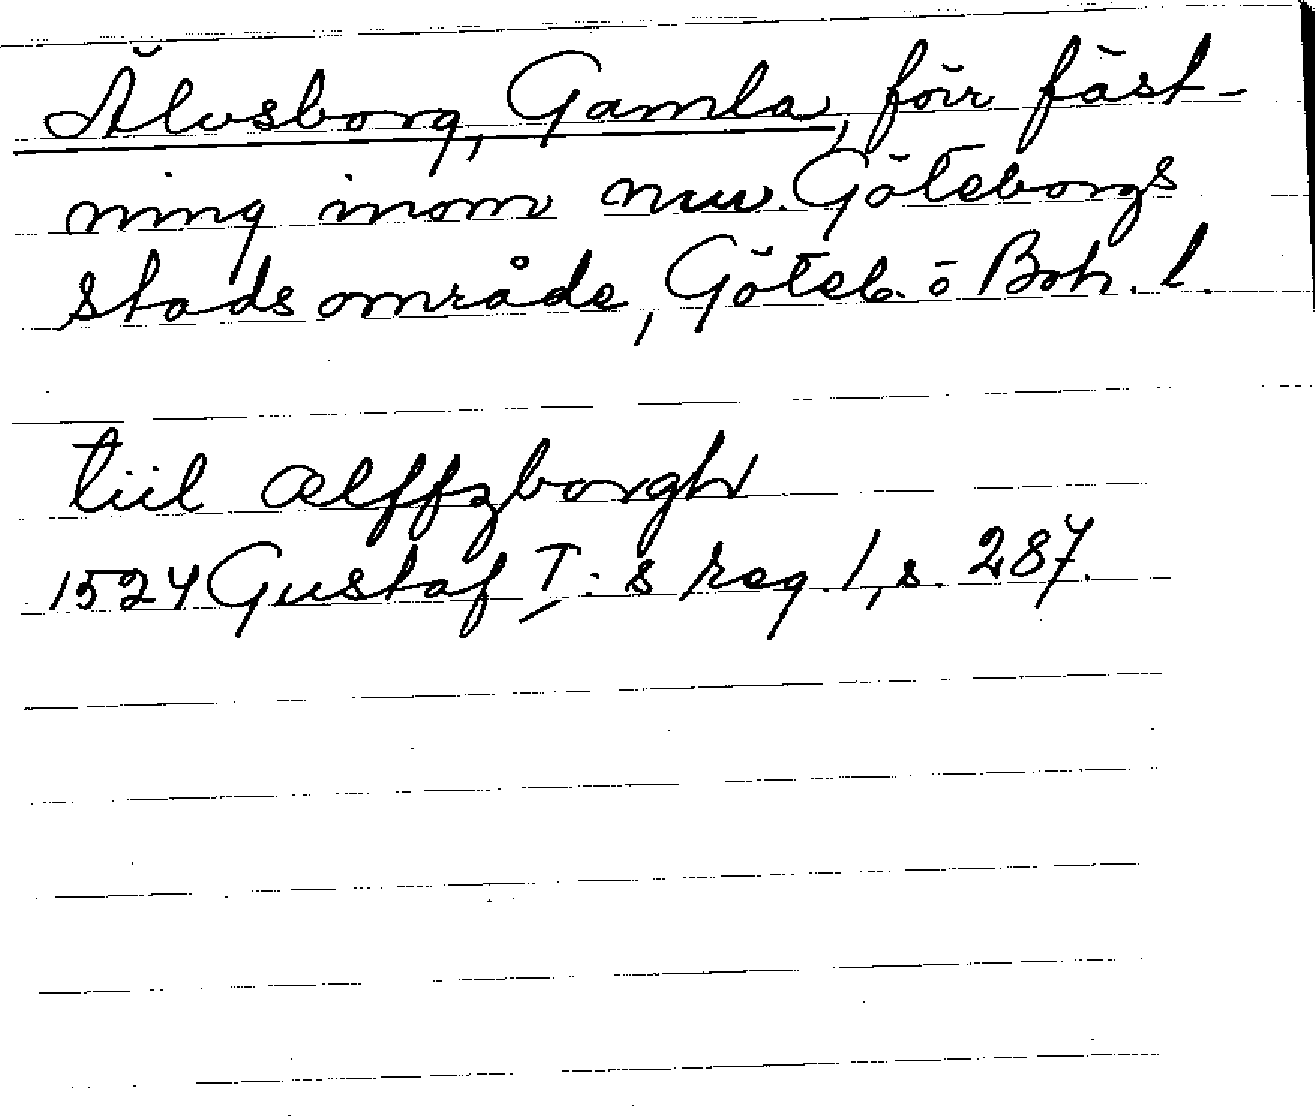 Älvsborg, Gamla, förr fäst-
ning inom nuv. Göteborgs
stadsområde, Göteb. o Boh. l.
tiil ælffzborgh
1524 Gustaf I:s reg. 1, s. 287.